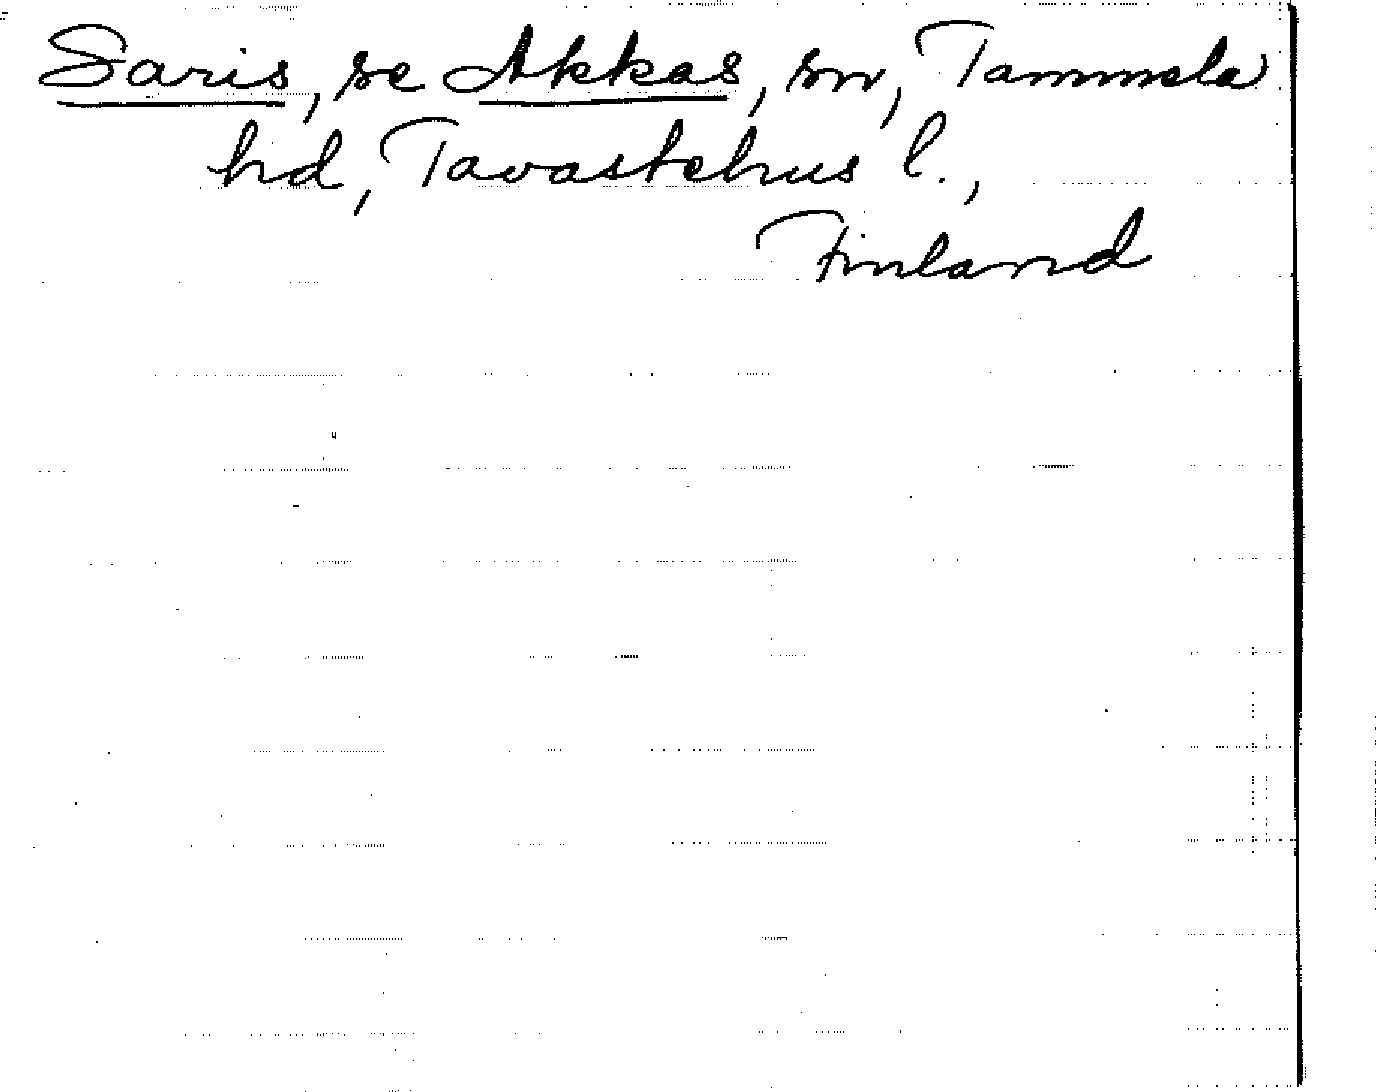 Saris, se Akkas, sn, Tammela
hd, Tavastehus l.,
Finland